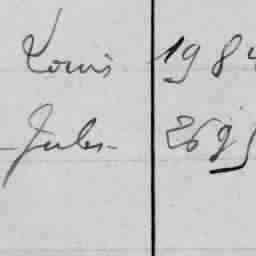 Louis 198
- Jules - 269